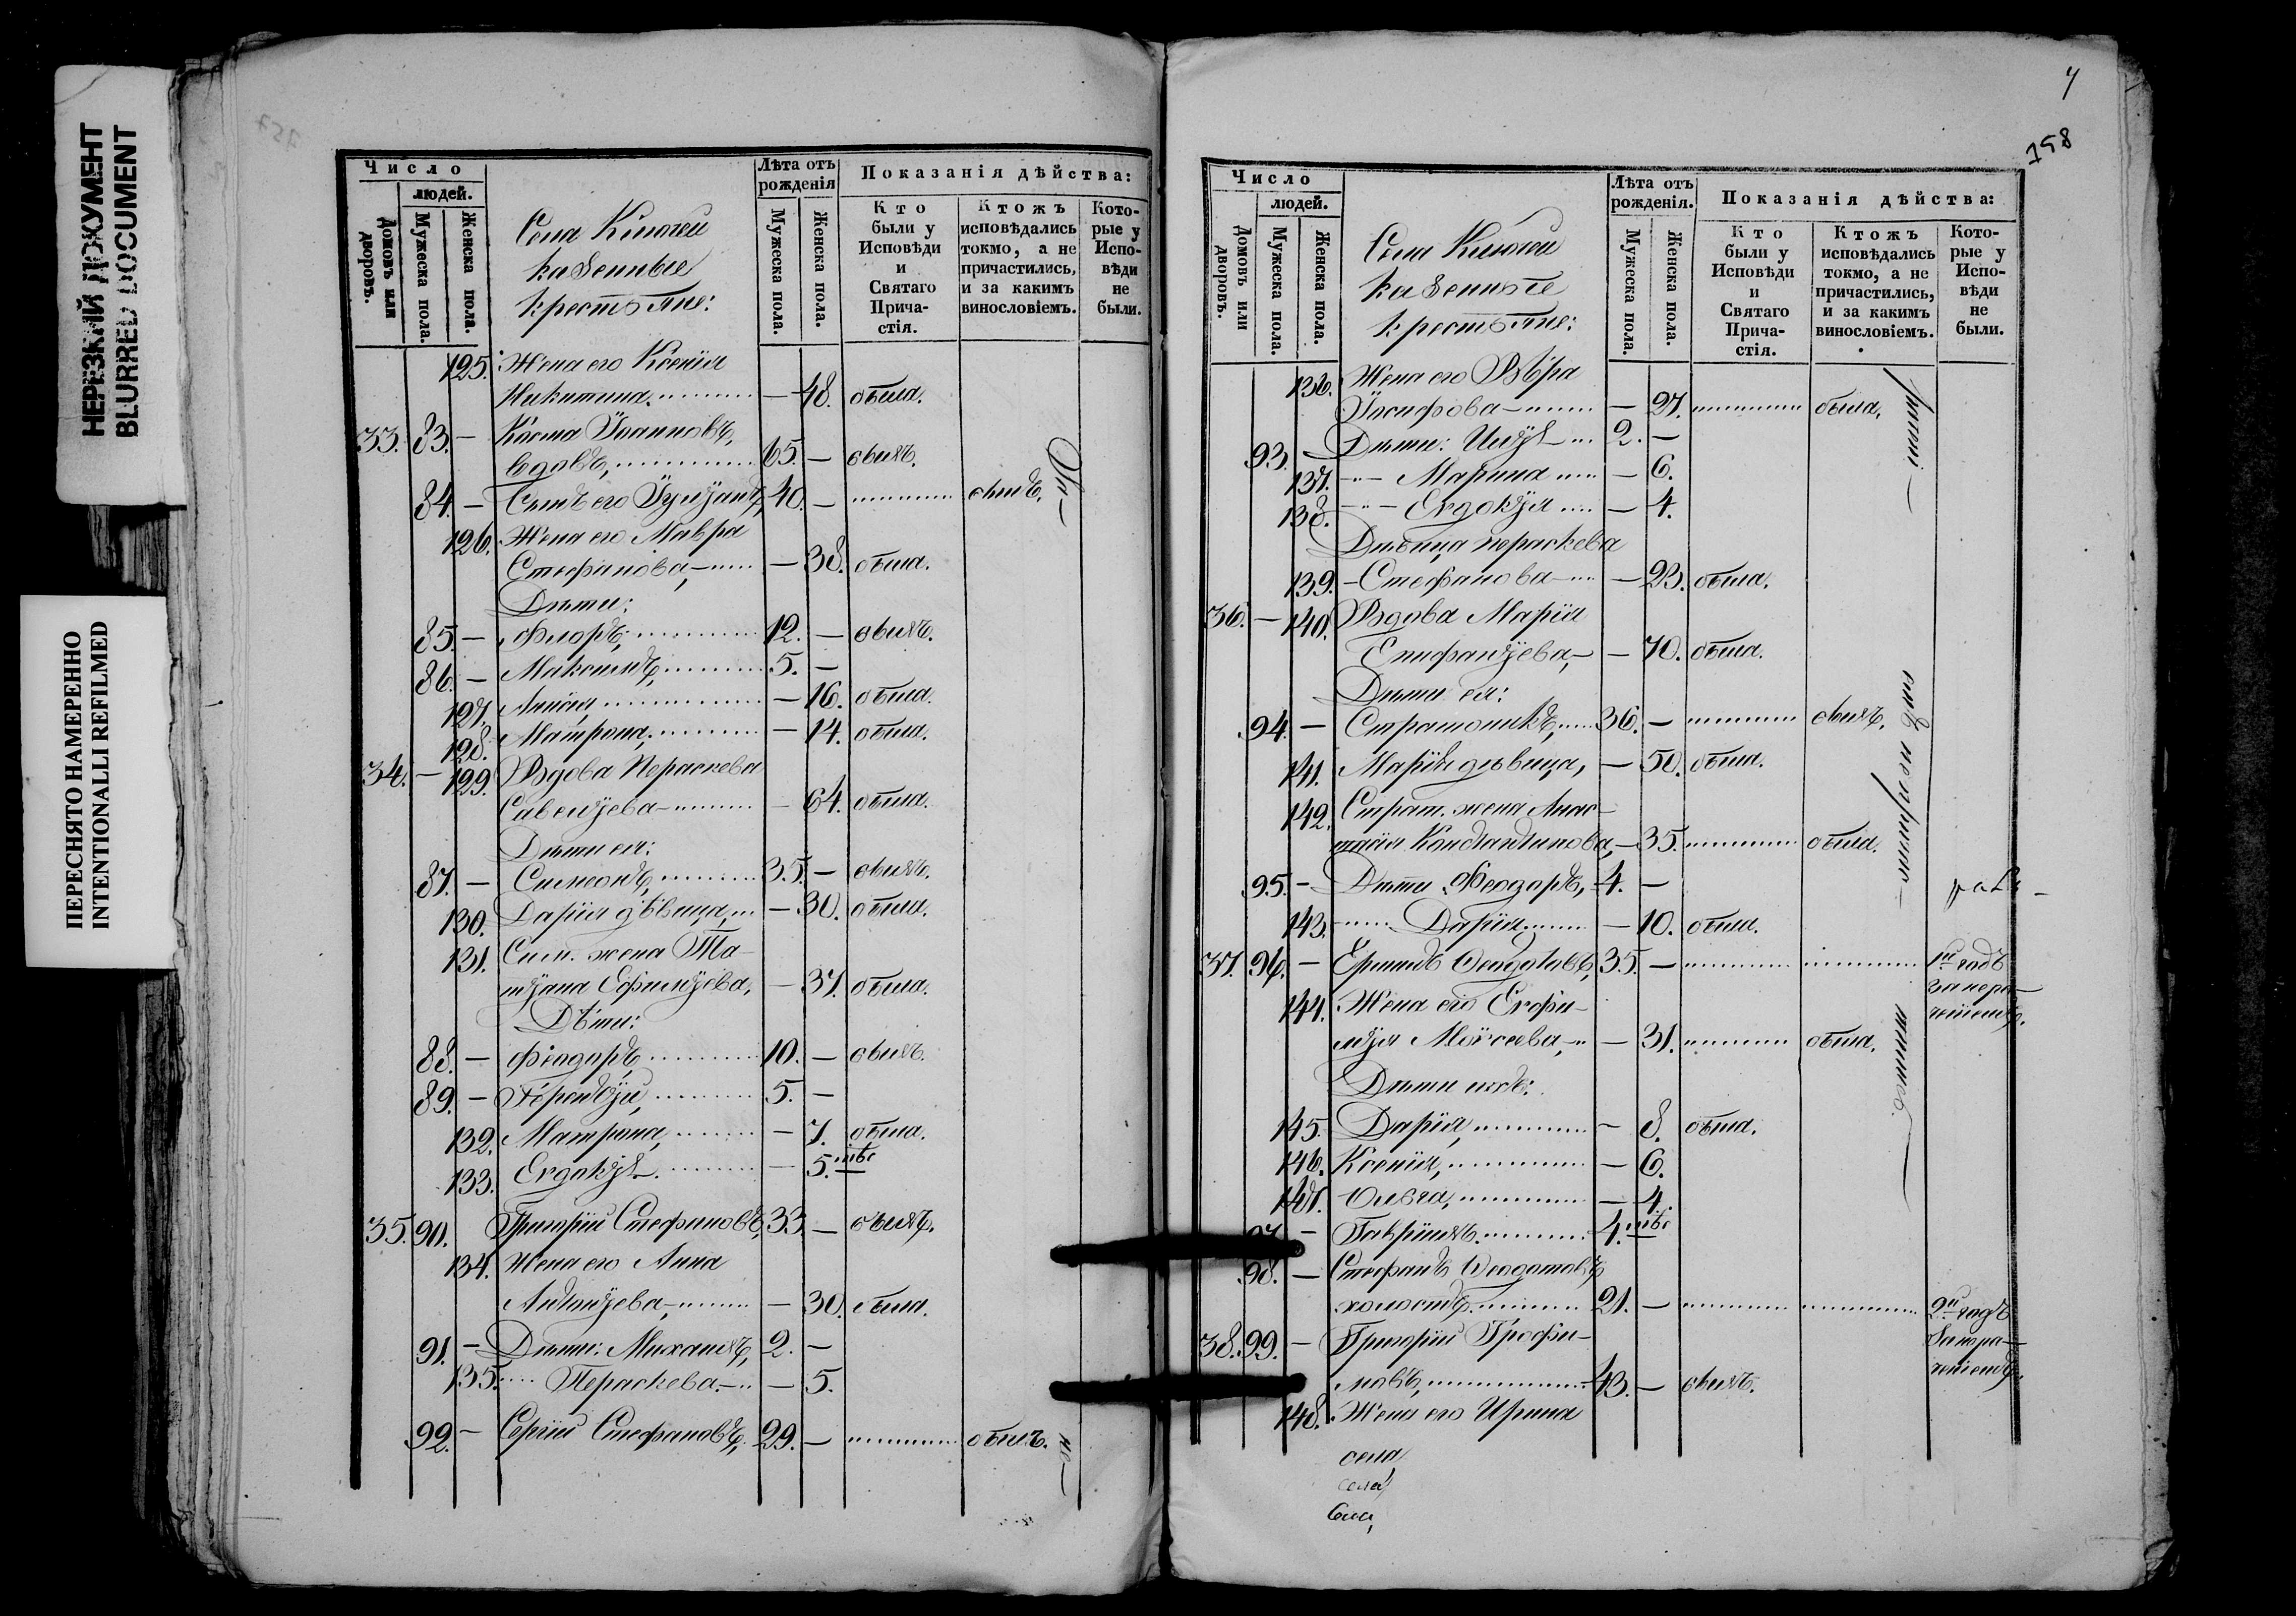 НЕРЕЗКИЙ ДОКУМЕНТ
BLURRED DOCUMENT
ПЕРЕСНЯТО НАМЕРЕННО
INTENTIONALLI REFILMED
Число
людей.
Домовъ или дворовъ.
Мужеска пола.
Женска пола.
Села
казенные
крестьяне:
Лѣта отъ рожденія
Мужеска пола.
Женска пола.
Показанія дѣйства:
Кто были у Исповѣди и Святаго Прича-стія.
Ктожъ исповѣдались токмо, а не причастились, и за какимъ винословіемъ.
Кото-рые у Испо-вѣди не были.
125. Жена его Ксенія
Никитина — 48. была.
33. 83. — Косма Іоанновъ,
вдовъ, 65. — былъ.
84. — Сынъ его Іуліанъ, 40. — былъ.
126. Жена его Мавра
Стефанова, — 38. была.
Дѣти:
85. — Флоръ, 12. — былъ.
86. — Максимъ, 5. —
127. — 16. была.
128. Матрона, — 14. была.
34. — 129. Вдова Пераскева
Савеліева — 64. была.
Дѣти ея:
87. — Симеонъ, 35. — былъ.
130. Дарія дѣвица, — 30. была.
131. Сим. жена Та-
тіана Ефиміева, — 37. была.
Дѣти:
88. — Феодоръ, 10. — былъ.
89. — Терентій, 5. —
132. Матрона, — 7. была.
133. Евдокія — 5. мѣс
35. 90. Григорій Стефановъ, 33. — былъ.
134. Жена его Анна
Антоніева, — 30. была.
91. — Дѣти: Михаилъ, 2. —
135. Пераскева. — 5.
92. — Сергій Стефановъ, 29. — былъ.
по —
7
158
Число
людей.
Домовъ или дворовъ.
Мужеска пола.
Женска пола.
Села
казенные
крестьяне:
Лѣта отъ рожденія.
Мужеска пола.
Женска пола.
Показанія дѣйства:
Кто были у Исповѣди и Святаго Прича-стія.
Ктожъ исповѣдались токмо, а не причастились, и за какимъ винословіемъ.
Кото-рые у Испо-вѣди не были.
136. Жена его Вѣра
Іосифова — 27. была.
93. — Дѣти: Илія 2. —
137. Марина — 6.
138. Евдокія — 4.
Дѣвица Пераскева
139. Стефанова — 23. была.
36. — 140. Вдова Марія
Епифаніева, — 70. была.
Дѣти ея:
94. — Стратоникъ, 36. — былъ.
141. Марія дѣвица, — 50. была.
142. Страт. жена Анас-
тасія Константинова, — 35. была.
95. — Дѣти: Феодоръ, 4. —
143. Дарія — 10. была.
37. 96. — Ермилъ Феодотовъ, 35. — 1й годъ
за нера-
144. Жена его Евфи-
мія Моѵсеева, — 31. была.
Дѣти ихъ:
145. Дарія, — 8. была.
146. Ксенія, — 6.
147. Ольга, — 4.
97. — Гавріилъ. 4. мѣс
98. — Стефанъ Феодотовъ
холостъ, 21. — 2й годъ
38. 99. — Григорій Трофи-
мовъ, 43. — былъ.
148. Жена его Ирина
села
села